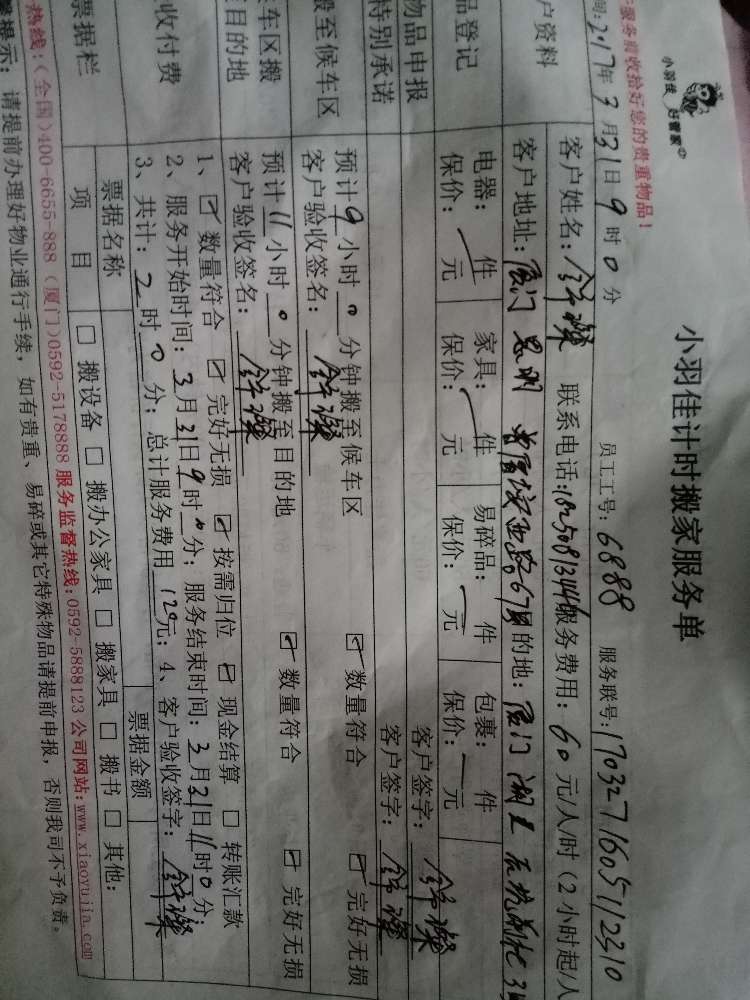 小羽佳计时搬家服务单
小羽佳 好管家
服务前收拾好您的贵重物品！
员工工号：6888 服务联号：1703271605112310
间：2017年3月31日9时0分
户资料
客户姓名： 联系电话： 服务费用：60元/人/时（2小时起/人
客户地址：厦门 思明 目的地：厦门 湖里
品登记
电器： 件 家具： 件 易碎品： 件 包裹： 件
保价： 元 保价： 元 保价： 元 保价： 元
物品申报 客户签字：
特别承诺 客户签字：
搬至候车区
预计9小时0分钟搬至候车区 ☑ 数量符合 ☑ 完好无损
客户验收签名：
候车区搬
目的地
预计11小时0分钟搬至目的地 ☑ 数量符合 ☑ 完好无损
客户验收签名：
收付费
1、☑ 数量符合 ☑ 完好无损 ☑ 按需归位 ☑ 现金结算 □ 转账汇款
2、服务开始时间：3月31日9时0分；服务结束时间：3月31日11时0分；
3、共计：2时0分；总计服务费用120元；4、客户验收签字：
票据栏
票据名称 票据金额
项 目 □ 搬设备 □ 搬办公家具 □ 搬家具 □ 搬书 □ 其他：
热线：（全国）400-6655-888（厦门）0592-5178888 服务监督热线：0592-5888123 公司网站：www.xiaoyujia.com
提示：请提前办理好物业通行手续，如有贵重、易碎或其它特殊物品请提前申报，否则我司不予负责。